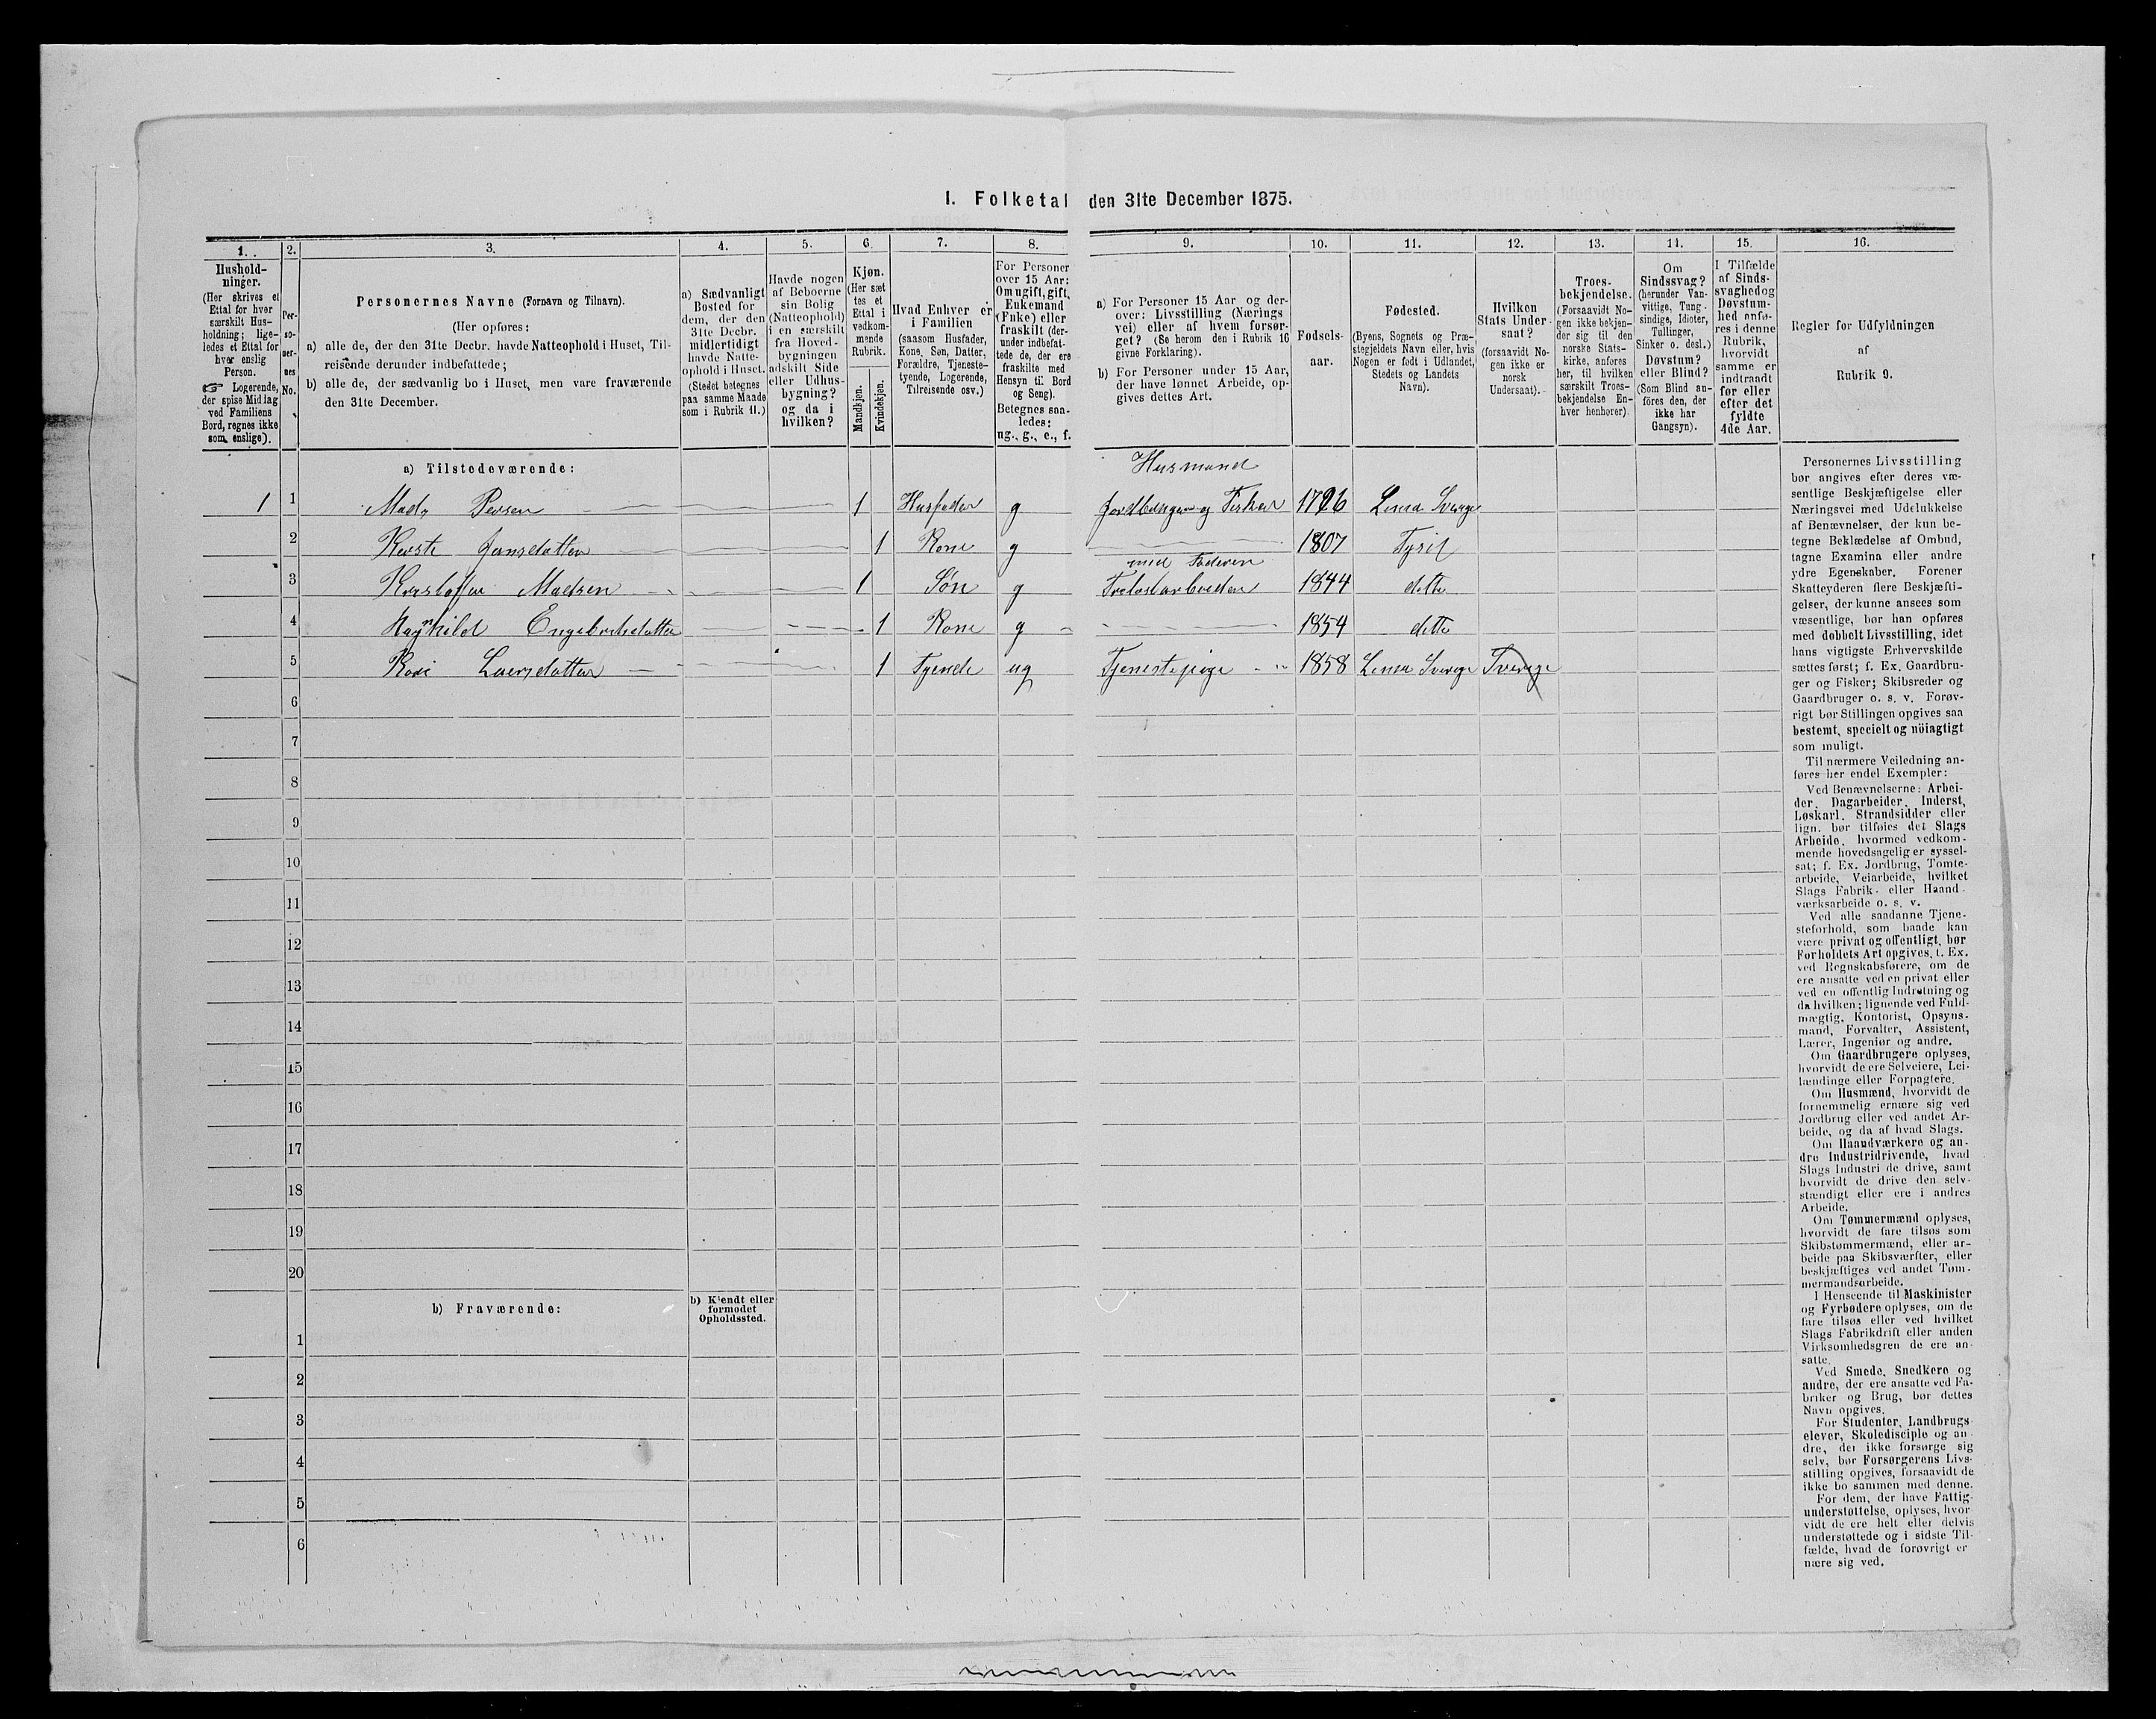 I. Folketal den 31te December 1875.
1.
Hushold-
ninger.
(Her skrives et
Ettal for hver
særskilt Hus-
holdning; lige-
ledes et Ettal for
hver enslig
Person.
☞ Logerende,
der spise Middag
ved Familiens
Bord, regnes ikke
som enslige).
2.
Per-
so-
ner-
nes
No.
3.
Personernes Navne (Fornavn og Tilnavn).
(Her opføres:
a) alle de, der den 31te Decbr. havde Natteophold i Huset, Til-
reisende derunder indbefattede;
b) alle de, der sædvanlig bo i Huset, men vare fraværende
den 31te December.
4.
a) Sædvanligt
Bosted for
dem, der den
31te Decbr.
midlertidigt
havde Natte-
ophold i Huset.
(Stedet betegnes
paa samme Maade
som i Rubrik 11.)
5.
Havde nogen
af Beboerne
sin Bolig
(Natteophold)
i en særskilt
fra Hoved-
bygningen
adskilt Side
eller Udhus-
bygning?
og da i
hvilken?
6.
Kjøn.
(Her sæt
tes et
Ettal i
vedkom-
mende
Rubrik.
Mandkjøn.
Kvindekjøn.
7.
Hvad Enhver er
i Familien
(saasom Husfader,
Kone, Søn, Datter,
Forældre, Tjeneste-
tyende, Logerende,
Tilreisende osv.)
8.
For Personer
over 15 Aar:
Om ugift, gift,
Enkemand
(Enke) eller
fraskilt (der-
under indbefat-
tede de, der ere
fraskilte med
Hensyn til Bord
og Seng).
Betegnes saa-
ledes:
ug., g., e., f.
9.
a) For Personer 15 Aar og der-
over: Livsstilling (Nærings
vei) eller af hvem forsør-
get? (Se herom den i Rubrik 16
givne Forklaring).
b) For Personer under 15 Aar,
der have lønnet Arbeide, op-
gives dettes Art.
10.
Fødsels-
aar.
11.
Fødested.
(Byens, Sognets og Præ-
stegjeldets Navn eller, hvis
Nogen er født i Udlandet,
Stedets og Landets
Navn).
12.
Hvilken
Stats Under-
saat?
(forsaavidt No-
gen ikke er
norsk
Undersaat).
13.
Troes-
bekjendelse.
(Forsaavidt No-
gen ikke bekjen-
der sig til den
norske Stats-
kirke, anføres
her, til hvilken
særskilt Troes-
bekjendelse En-
hver henhører).
14.
Om
Sindssvag?
(herunder Van-
vittige, Tung-
sindige, Idioter,
Tullinger,
Sinker o. desl.)
Døvstum?
eller Blind?
(Som Blind an-
føres den, der
ikke har
Gangsyn).
15.
I Tilfælde
af Sinds-
svaghed og
Døvstum-
hed anfø-
res i denne
Rubrik,
hvorvidt
samme er
indtraadt
før eller
efter det
fyldte
4de Aar.
16.
Regler for Udfyldningen
af
Rubrik 9.
a) Tilstedeværende:
Husmand
1 1 Mads Persen 1 Husfader g Jordbruger og Fisker 1796 Lima Sverige
2 Kerste Jonsdatter 1 Kone g 1807 Tysil
med Faderen
3 Kristoffer Madsen 1 Søn g Treløstarbeider 1844 ditto
4 Ragnhild Engebretsdatter 1 Kone g 1854 ditto
5 Kari Larsdatter 1 Tjende ug Tjenestepige 1858 Lima Sverige Sverige
6
7
8
9
10
11
12
13
14
15
16
17
18
19
20
b) Fraværende:
b) Kjendt eller
formodet
Opholdssted.
1
2
3
4
5
6
Personernes Livsstilling
bør angives efter deres væ-
sentlige Beskjæftigelse eller
Næringsvei med Udelukkelse
af Benævnelser, der kun be-
tegne Beklædelse af Ombud,
tagne Examina eller andre
ydre Egenskaber. Forener
Skatteyderen flere Beskjæfti-
gelser, der kunne ansees som
væsentlige, bør han opføres
med dobbelt Livsstilling, idet
hans vigtigste Erhvervskilde
sættes først; f. Ex. Gaardbru-
ger og Fisker; Skibsreder og
Gaardbruger o. s. v. Forøv-
rigt bør Stillingen opgives saa
bestemt, specielt og nöiagtigt
som muligt.
Til nærmere Veiledning an-
føres her endel Exempler:
Ved Benævnelserne: Arbei-
der, Dagarbeider, Inderst,
Løskarl, Strandsidder eller
lign. bør tilføies det Slags
Arbeide, hvormed vedkom-
mende hovedsagelig er syssel-
sat; f. Ex. Jordbrug, Tomte-
arbeide, Veiarbeide, hvilket
Slags Fabrik- eller Haand-
værksarbeide o. s. v.
Ved alle saadanne Tjene-
steforhold, som baade kan
være privat og offentligt, bør
Forholdets Art opgives, f. Ex.
ved Regnskabsførere, om de
ere ansatte ved en privat eller
ved en offentlig Indretning og
da hvilken; lignende ved Fuld-
mægtig, Kontorist, Opsyns-
mand, Forvalter, Assistent,
Lærer, Ingeniør og andre.
Om Gaardbrugere oplyses,
hvorvidt de ere Selveiere, Lei-
lændinge eller Forpagtere.
Om Husmænd, hvorvidt de
fornemmelig ernære sig ved
Jordbrug eller ved andet Ar-
beide, og da af hvad Slags.
Om Haandværkere og an-
dre Industridrivende, hvad
Slags Industri de drive, samt
hvorvidt de drive den selv-
stændigt eller ere i andres
Arbeide.
Om Tømmermænd oplyses,
hvorvidt de fare tilsøs som
Skibstømmermænd, eller ar-
beide paa Skibsværfter, eller
beskjæftiges ved andet Tøm-
mermandsarbeide.
I Henseende til Maskinister
og Fyrbødere oplyses, om de
fare tilsøs eller ved hvilket
Slags Fabrikdrift eller anden
Virksomhedsgren de ere an-
satte.
Ved Smede, Snedkere og
andre, der ere ansatte ved Fa-
briker og Brug, bør dettes
Navn opgives.
For Studenter, Landbrugs-
elever, Skoledisciple og an-
dre, der ikke forsørge sig
selv, bør Forsørgerens Livs-
stilling opgives, forsaavidt de
ikke bo sammen med denne.
For dem, der have Fattig-
understøttelse, oplyses, hvor-
vidt de ere helt eller delvis
understøttede og i sidste Til-
fælde, hvad de forøvrigt er
nære sig ved.